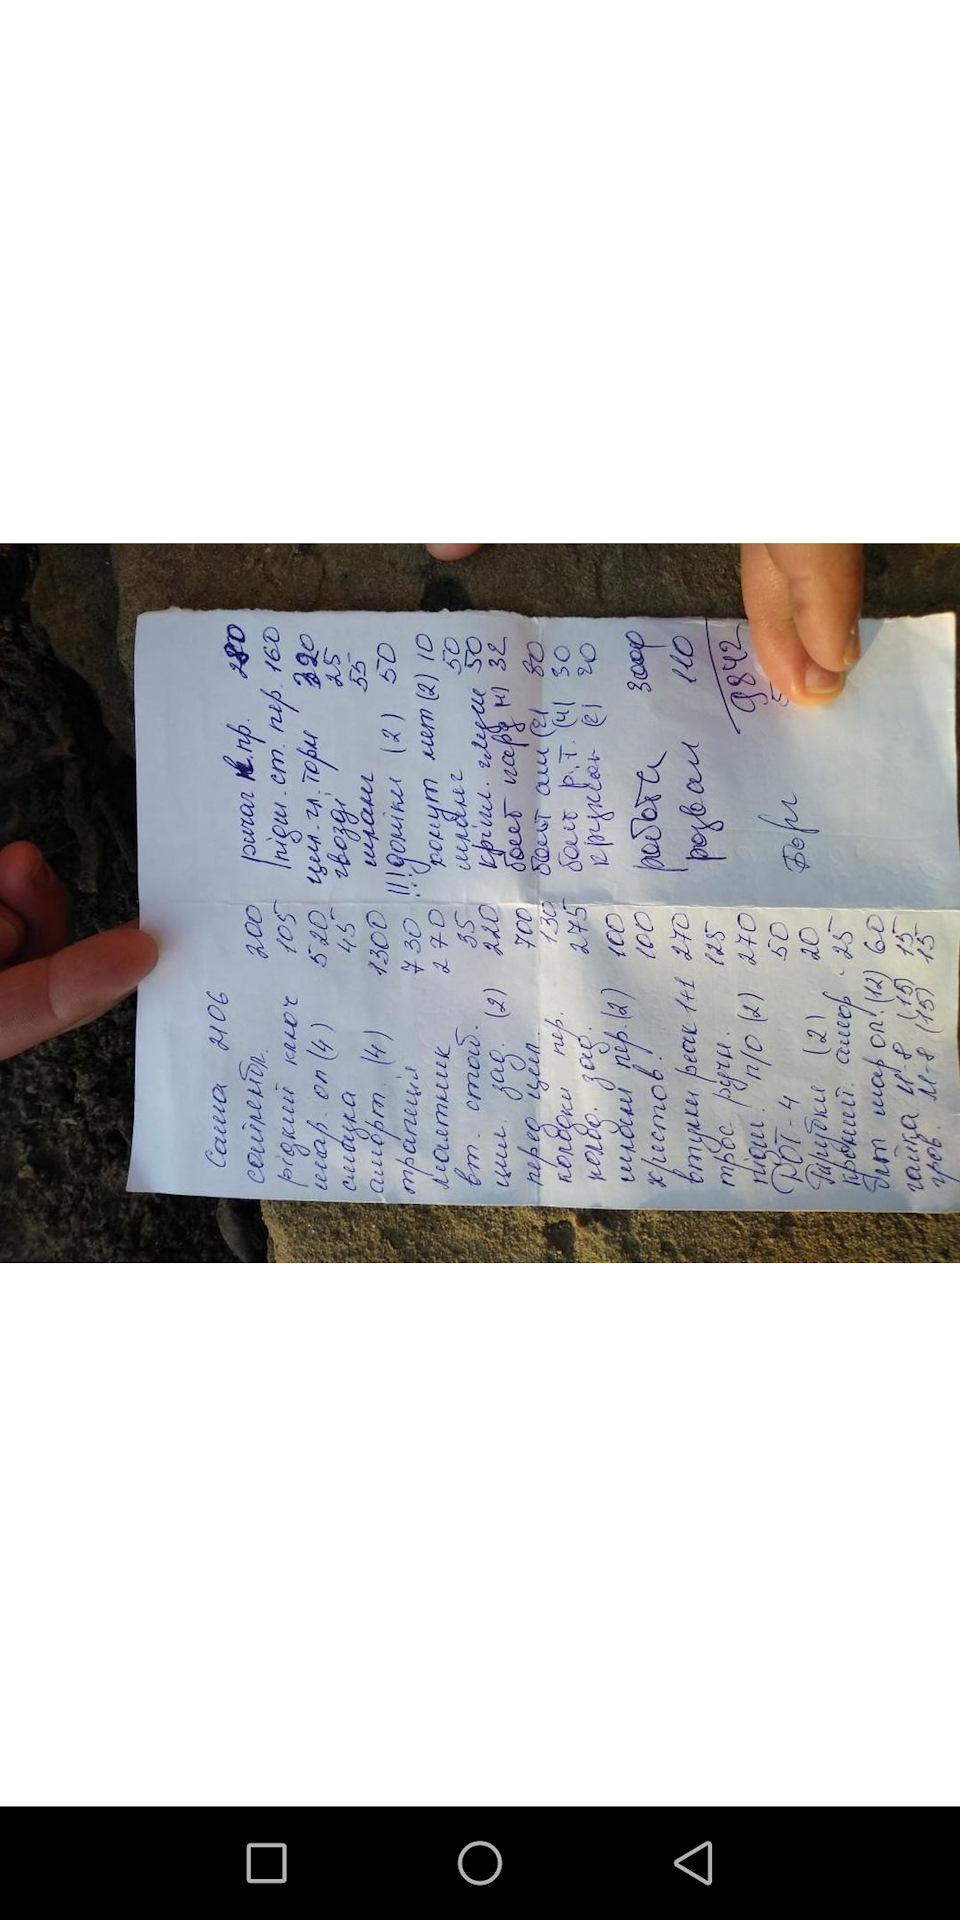 Саша 2106
сайлентбл. 200
рідкий ключ 105
шар. оп (4) 520
смазка 45
аморт. (4) 1300
трапеція 730
маятник 270
вт. стаб. 35
цил. зад. (2) 220
перед цил. 700
колодки пер. 130
колод. зад. 275
шланги пер. (2) 100
хрестов. 100
втулки реак 1+1 270
трос ручн. 125
підш. п/о (2) 270
DOT-4 50
Трубки (2) 20
кроний. амор. 25
болт шар оп. (12) 60
гайка М-8 (15) 15
гров. М-8 (15) 15
ричаг к.пр. 280
підш. ст. пер. 160
цил. гл. торм 320
гвозді 25
шланг 55
!!! доніки (2) 50
хомут мет (2) 10
шланг 50
кріпл. глуш 50
болт кард (4) 32
болт ам (2) 80
болт р.т. (4) 30
(2) 20
работи 3000
розвал 110
9842
5
Борг